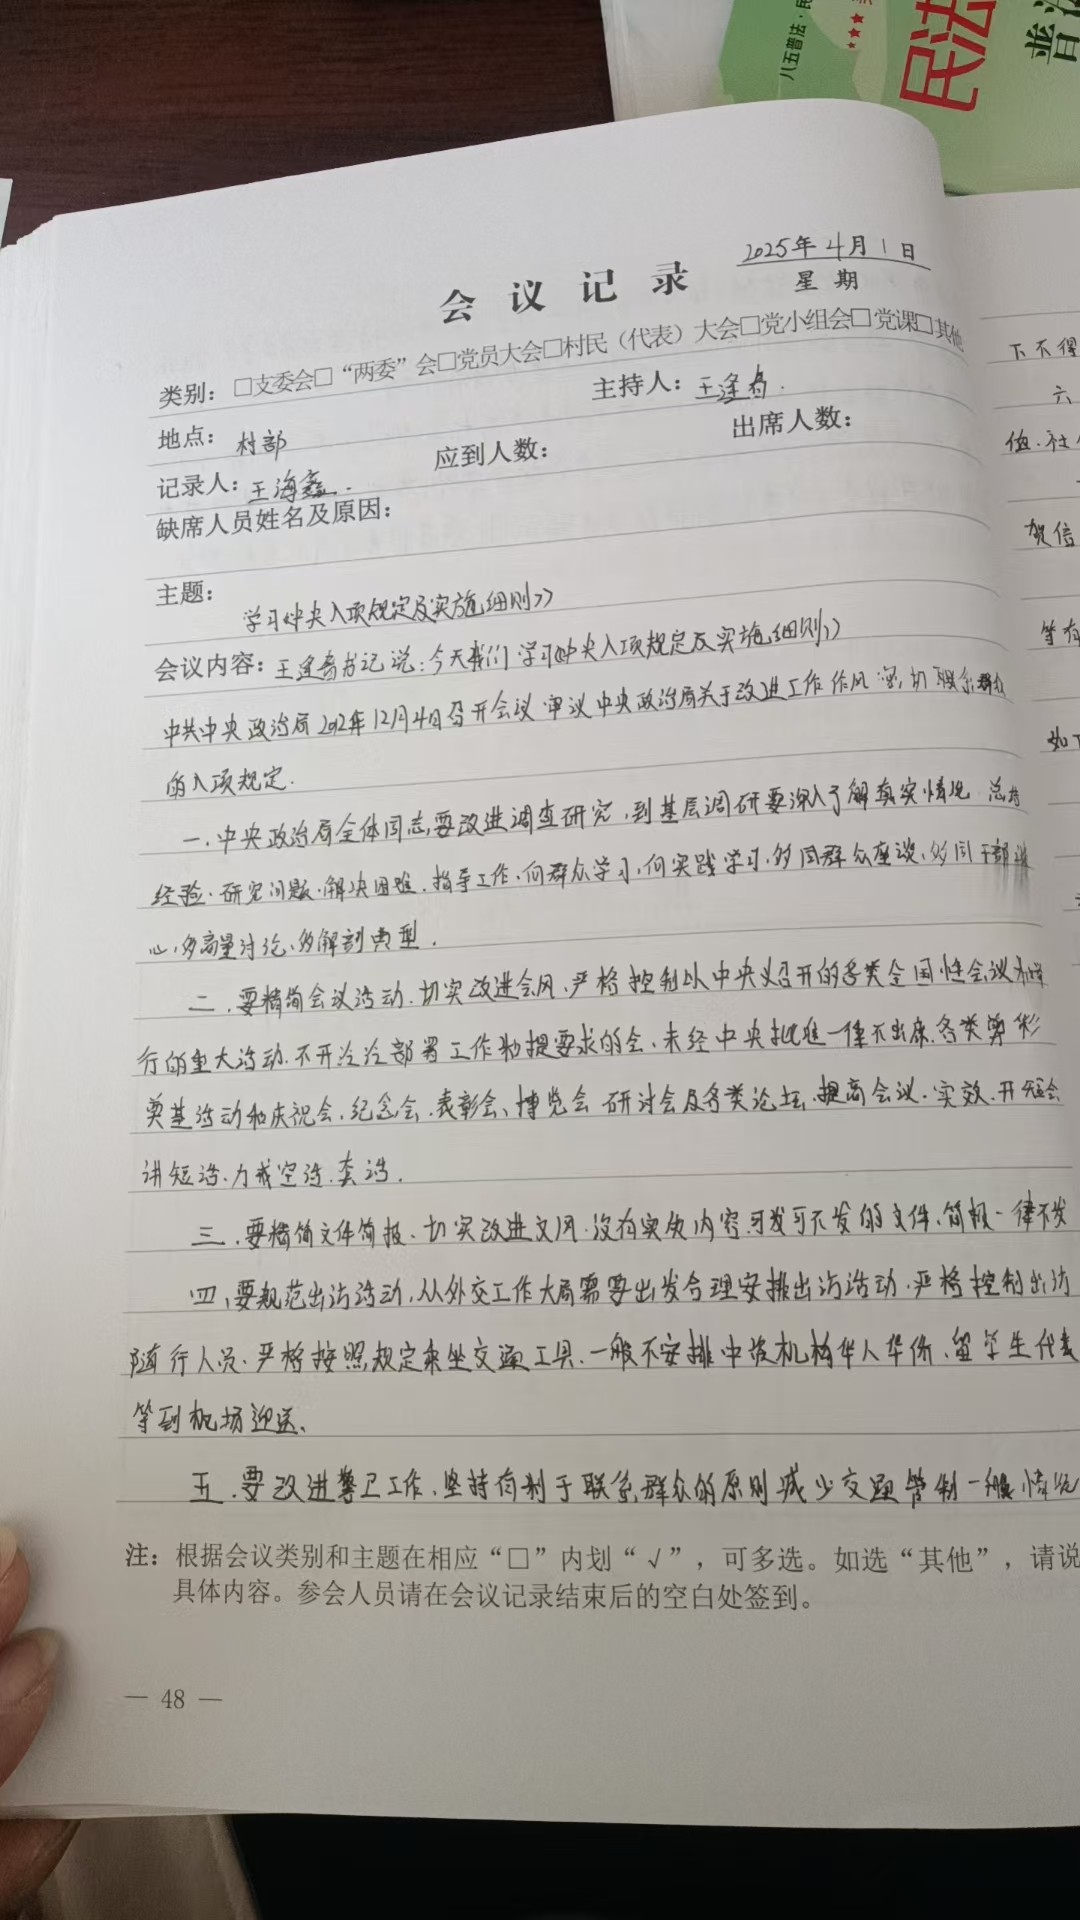 八五普法·民
民法
普法
2025年4月1日
会议记录
星期
类别：□支委会□“两委”会□党员大会□村民（代表）大会□党小组会□党课□其他
主持人：王逢春.
地点：村部
应到人数：
出席人数：
记录人：王海鑫.
缺席人员姓名及原因：
主题：
学习《中央八项规定及实施细则》
会议内容：王逢春书记说：今天我们学习《中央八项规定及实施细则》
中共中央政治局2012年12月4日召开会议 审议中央政治局关于改进工作作风 密切联系群众
的八项规定.
一、中央政治局全体同志要改进调查研究，到基层调研要深入了解真实情况 总结
经验、研究问题、解决困难、指导工作、向群众学习、向实践学习，多同群众座谈、多同干部谈
心，多商量讨论、多解剖典型.
二、要精简会议活动、切实改进会风、严格控制以中央名义召开的各类全国性会议和举
行的重大活动、不开泛泛部署工作和提要求的会、未经中央批准一律不出席各类剪彩
奠基活动和庆祝会、纪念会、表彰会、博览会 研讨会及各类论坛、提高会议、实效、开短会
讲短话、力戒空话、套话.
三、要精简文件简报、切实改进文风、没有实质内容可发可不发的文件、简报一律不发
四、要规范出访活动，从外交工作大局需要出发合理安排出访活动，严格控制出访
随行人员、严格按照规定乘坐交通工具、一般不安排中资机构华人华侨、留学生代表
等到机场迎送、
五、要改进警卫工作、坚持有利于联系群众的原则减少交通管制一般情况
注：根据会议类别和主题在相应“□”内划“√”，可多选。如选“其他”，请说
具体内容。参会人员请在会议记录结束后的空白处签到。
— 48 —
下不得
六
值、社
贺信
等有
如下